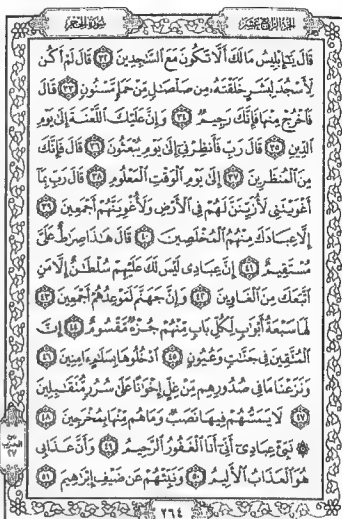 الجزء الرابع عشر
سورة الحجر
قَالَ يَٰٓإِبْلِيسُ مَا لَكَ أَلَّا تَكُونَ مَعَ ٱلسَّٰجِدِينَ ٣٢ قَالَ لَمْ أَكُن
لِّأَسْجُدَ لِبَشَرٍ خَلَقْتَهُۥ مِن صَلْصَٰلٍ مِّنْ حَمَإٍ مَّسْنُونٍ ٣٣ قَالَ
فَٱخْرُجْ مِنْهَا فَإِنَّكَ رَجِيمٌ ٣٤ وَإِنَّ عَلَيْكَ ٱللَّعْنَةَ إِلَىٰ يَوْمِ
ٱلدِّينِ ٣٥ قَالَ رَبِّ فَأَنظِرْنِىٓ إِلَىٰ يَوْمِ يُبْعَثُونَ ٣٦ قَالَ فَإِنَّكَ
مِنَ ٱلْمُنظَرِينَ ٣٧ إِلَىٰ يَوْمِ ٱلْوَقْتِ ٱلْمَعْلُومِ ٣٨ قَالَ رَبِّ بِمَآ
أَغْوَيْتَنِى لَأُزَيِّنَنَّ لَهُمْ فِى ٱلْأَرْضِ وَلَأُغْوِيَنَّهُمْ أَجْمَعِينَ ٣٩
إِلَّا عِبَادَكَ مِنْهُمُ ٱلْمُخْلَصِينَ ٤٠ قَالَ هَٰذَا صِرَٰطٌ عَلَىَّ
مُسْتَقِيمٌ ٤١ إِنَّ عِبَادِى لَيْسَ لَكَ عَلَيْهِمْ سُلْطَٰنٌ إِلَّا مَنِ
ٱتَّبَعَكَ مِنَ ٱلْغَاوِينَ ٤٢ وَإِنَّ جَهَنَّمَ لَمَوْعِدُهُمْ أَجْمَعِينَ ٤٣
لَهَا سَبْعَةُ أَبْوَٰبٍ لِّكُلِّ بَابٍ مِّنْهُمْ جُزْءٌ مَّقْسُومٌ ٤٤ إِنَّ
ٱلْمُتَّقِينَ فِى جَنَّٰتٍ وَعُيُونٍ ٤٥ ٱدْخُلُوهَا بِسَلَٰمٍ ءَامِنِينَ ٤٦
وَنَزَعْنَا مَا فِى صُدُورِهِم مِّنْ غِلٍّ إِخْوَٰنًا عَلَىٰ سُرُرٍ مُّتَقَٰبِلِينَ
٤٧ لَا يَمَسُّهُمْ فِيهَا نَصَبٌ وَمَا هُم مِّنْهَا بِمُخْرَجِينَ ٤٨
۞ نَبِّئْ عِبَادِىٓ أَنِّىٓ أَنَا ٱلْغَفُورُ ٱلرَّحِيمُ ٤٩ وَأَنَّ عَذَابِى
هُوَ ٱلْعَذَابُ ٱلْأَلِيمُ ٥٠ وَنَبِّئْهُمْ عَن ضَيْفِ إِبْرَٰهِيمَ ٥١
٢٦٤